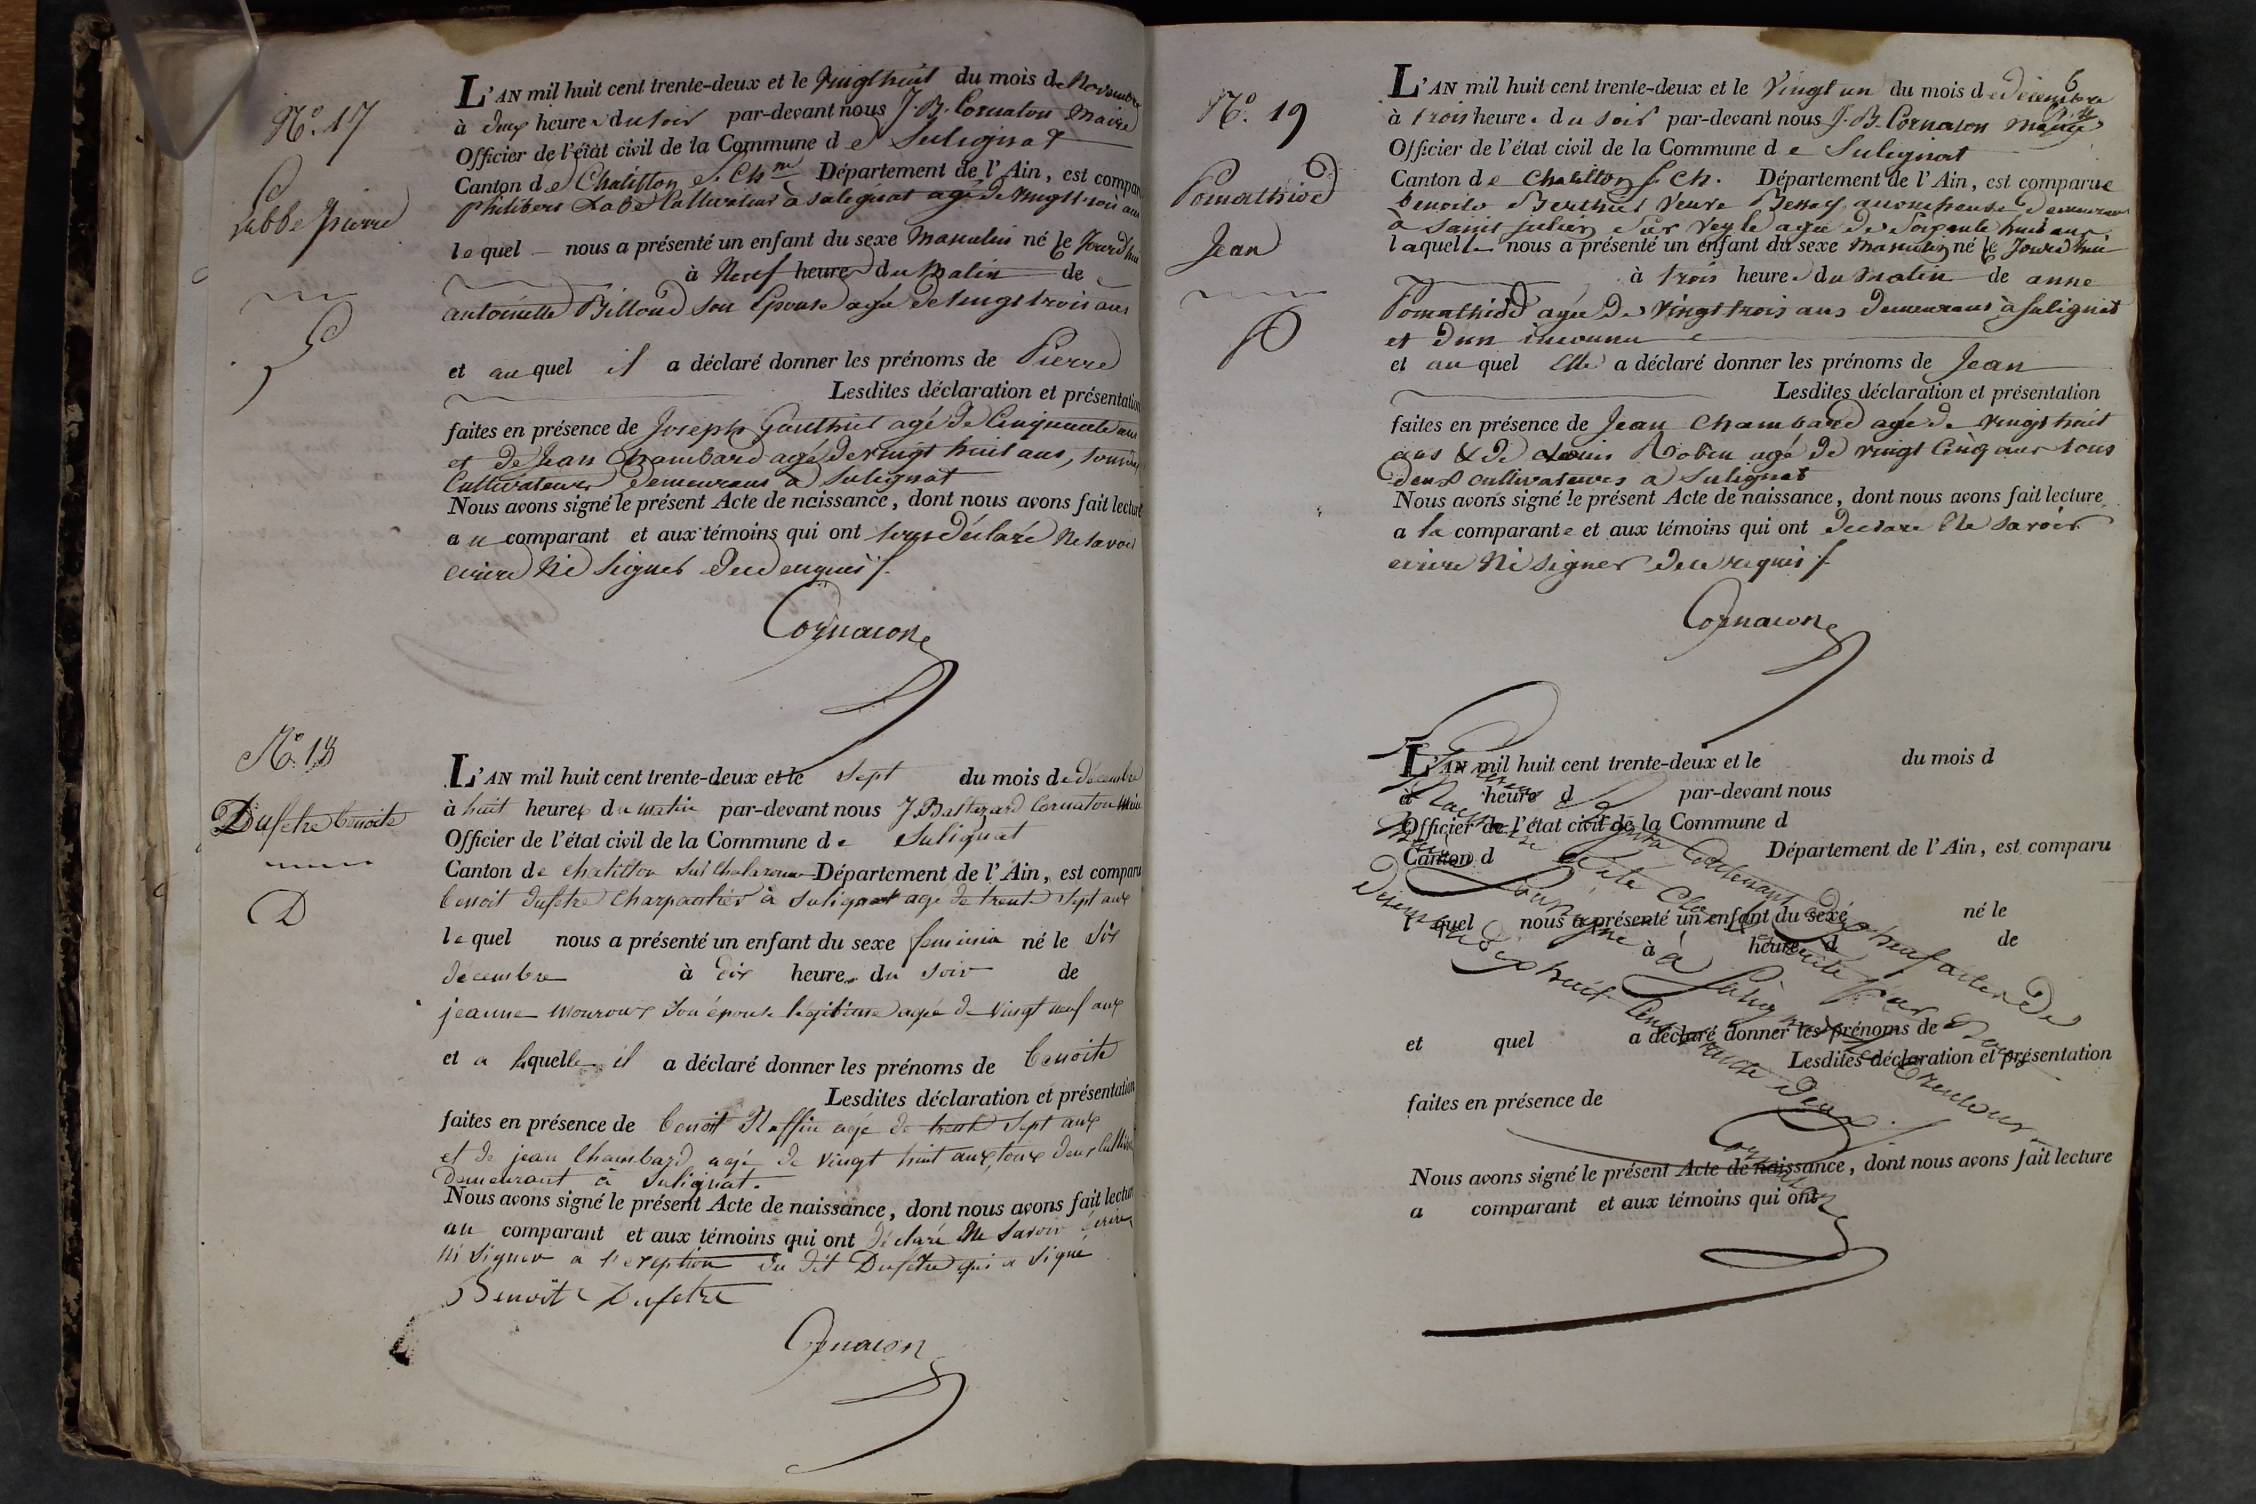 N.° 17
Labbe pierre
L'AN mil huit cent trente-deux et le vingt huit du mois de Novembre
à deux heures du soir par-devant nous J. B. Cornaton Maire
Officier de l'état civil de la Commune de Sulignat
Canton de Chatillon s. Chne Département de l'Ain, est comparu
philibert Labe Cultivateur à Sulignat agé de vingt trois ans
lequel nous a présenté un enfant du sexe masculin né le Jourd'hui
à Neuf heures du matin de
antoinette Billoud son Epouse agée de vingt trois ans
et auquel il a déclaré donner les prénoms de Pierre
Lesdites déclaration et présentation
faites en présence de Joseph Gauthier agé de Cinquante ans
et de Jean Chambard agé de vingt huit ans, tous deux
Cultivateurs demeurans à Sulignat
Nous avons signé le présent Acte de naissance, dont nous avons fait lecture
au comparant et aux témoins qui ont tous déclaré ne savoir
écrire Ni Signer de ce enquis
Cornaton
N.° 18
Dufetre benoite
D
L'AN mil huit cent trente-deux et le sept du mois de décembre
à huit heures du matin par-devant nous J. Baltazard Cornaton Maire
Officier de l'état civil de la Commune de Sulignat
Canton de chatillon sur Chalaronne Département de l'Ain, est comparu
benoit dufetre Charpentier à Sulignat agé de trente sept ans
lequel nous a présenté un enfant du sexe feminin né le six
decembre à dix heures du soir de
jeanne mouroux son épouse légitime agée de vingt neuf ans
et a laquelle il a déclaré donner les prénoms de benoite
Lesdites déclaration et présentation
faites en présence de benoit Raffin agé de trente sept ans
et de jean Chambard agé de vingt huit ans, tous deux Cultiv
demeurant à Sulignat.
Nous avons signé le présent Acte de naissance, dont nous avons fait lecture
au comparant et aux témoins qui ont déclaré ne savoir écrire
ni signer a l'exception du dit Dufetre qui a signé
Benoit Dufetre
Cornaton
6
N.° 19
Pomathiod
Jean
P
L'AN mil huit cent trente-deux et le vingt un du mois de décembre
à trois heures du soir par-devant nous J. B. Cornaton Maire
Officier de l'état civil de la Commune de Sulignat
Canton de Chatillon s. Ch. Département de l'Ain, est comparue
benoite Berthier veuve Bessay accoucheuse demeurant
à Saint julien Sur Veyle agée de Soixante huit ans
laquelle nous a présenté un enfant du sexe masculin né le Jourd'hui
à trois heures du matin de anne
Pomathiod agée de vingt trois ans demeurant à Sulignat
et d'un inconnu
et auquel Elle a déclaré donner les prénoms de Jean
Lesdites déclaration et présentation
faites en présence de Jean Chambard agé de vingt huit
ans & de Louis Robin agé de vingt Cinq ans tous
deux cultivateurs à Sulignat
Nous avons signé le présent Acte de naissance, dont nous avons fait lecture
a la comparante et aux témoins qui ont declaré Ne Savoir
ecrire Ni signer de ce requis
Cornaton
L'AN mil huit cent trente-deux et le du mois d
à heure d par-devant nous
Officier de l'état civil de la Commune d
Canton d Département de l'Ain, est comparu
l quel nous a présenté un enfant du sexe né le
à heure d de
et quel a déclaré donner les prénoms de
Lesdites déclaration et présentation
faites en présence de
Nous avons signé le présent Acte de naissance, dont nous avons fait lecture
a comparant et aux témoins qui ont
Le Present Registre Contenant dix neuf actes de
Naissance a été Clos et arrêté par Nous
Maire Soussigné à Sulignat le trente un
Décembre dix huit Cent trente deux
Cornaton